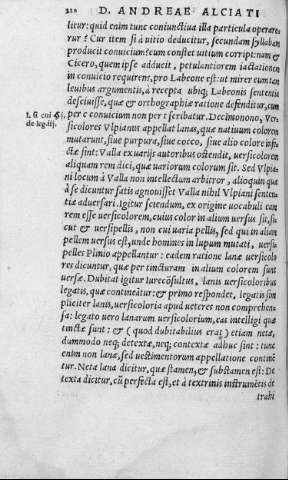 220 D. ANDREAE ALCIATI
litur: quid enim tunc coniunctiua illa particula operare
tur? Cur item si à uitio deducitur, secundam syllabam
producit conuicium: cùm constet uitium corripi: nam &
Cicero, quem ipse adducit, petulantiorem iactationem
in conuicio requirens, pro Labeone est: ut mirer eum tam
leuibus argumentis, à recepta ubiq; Labeonis sententia
desciuisse, quæ & orthographiæ ratione defenditur, cum
per c conuicium non per t scribatur. Decimonono, Ver-
sicolores Vlpianus appellat lanas, quæ natiuum colorem
mutarunt, siue purpura, siue cocco, siue alio colore infe-
ctæ sint: Valla ex uarijs autoribus ostendit, uersicolorem
aliquam rem dici, quæ uariorum colorum sit. Sed Vlpia
ni locum à Valla non intellectum arbitror, alioquin qua
à se dicuntur satis agnouisset Valla nihil Vlpiani senten-
tiæ aduersari. Igitur sciendum, ex origine uocabuli eam
rem esse uersicolorem, cuius color in alium uersus sit, si-
cut & uersipellis, non cui uaria pellis, sed qui in aliam
pellem uersus est, unde homines in lupum mutati, uersi-
pelles Plinio appellantur: eadem ratione lanæ uersicolo
res dicuntur, quæ per tincturam in alium colorem sunt
uersæ. Dubitat igitur Iurecōsultus, lanis uersicoloribus
legatis, quæ contineātur: & primo respondet, legatis sim
pliciter lanis, uersicoloria apud ueteres non comprehen-
sa: legato uero lanarum uersicolorium, eas intelligi quæ
tinctæ sunt: & (quod dubitabilius erat) etiam netæ,
dummodo neq; detextæ, neq; contextæ adhuc sint: tunc
enim non lanæ, sed uestimentorum appellatione contine
tur. Neta lana dicitur, quæ stamen, & substamen est: De
texta dicitur, cū perfecta est, et à textrinis instrumētis de
trahi
l. si cui §.
de leg. iij.